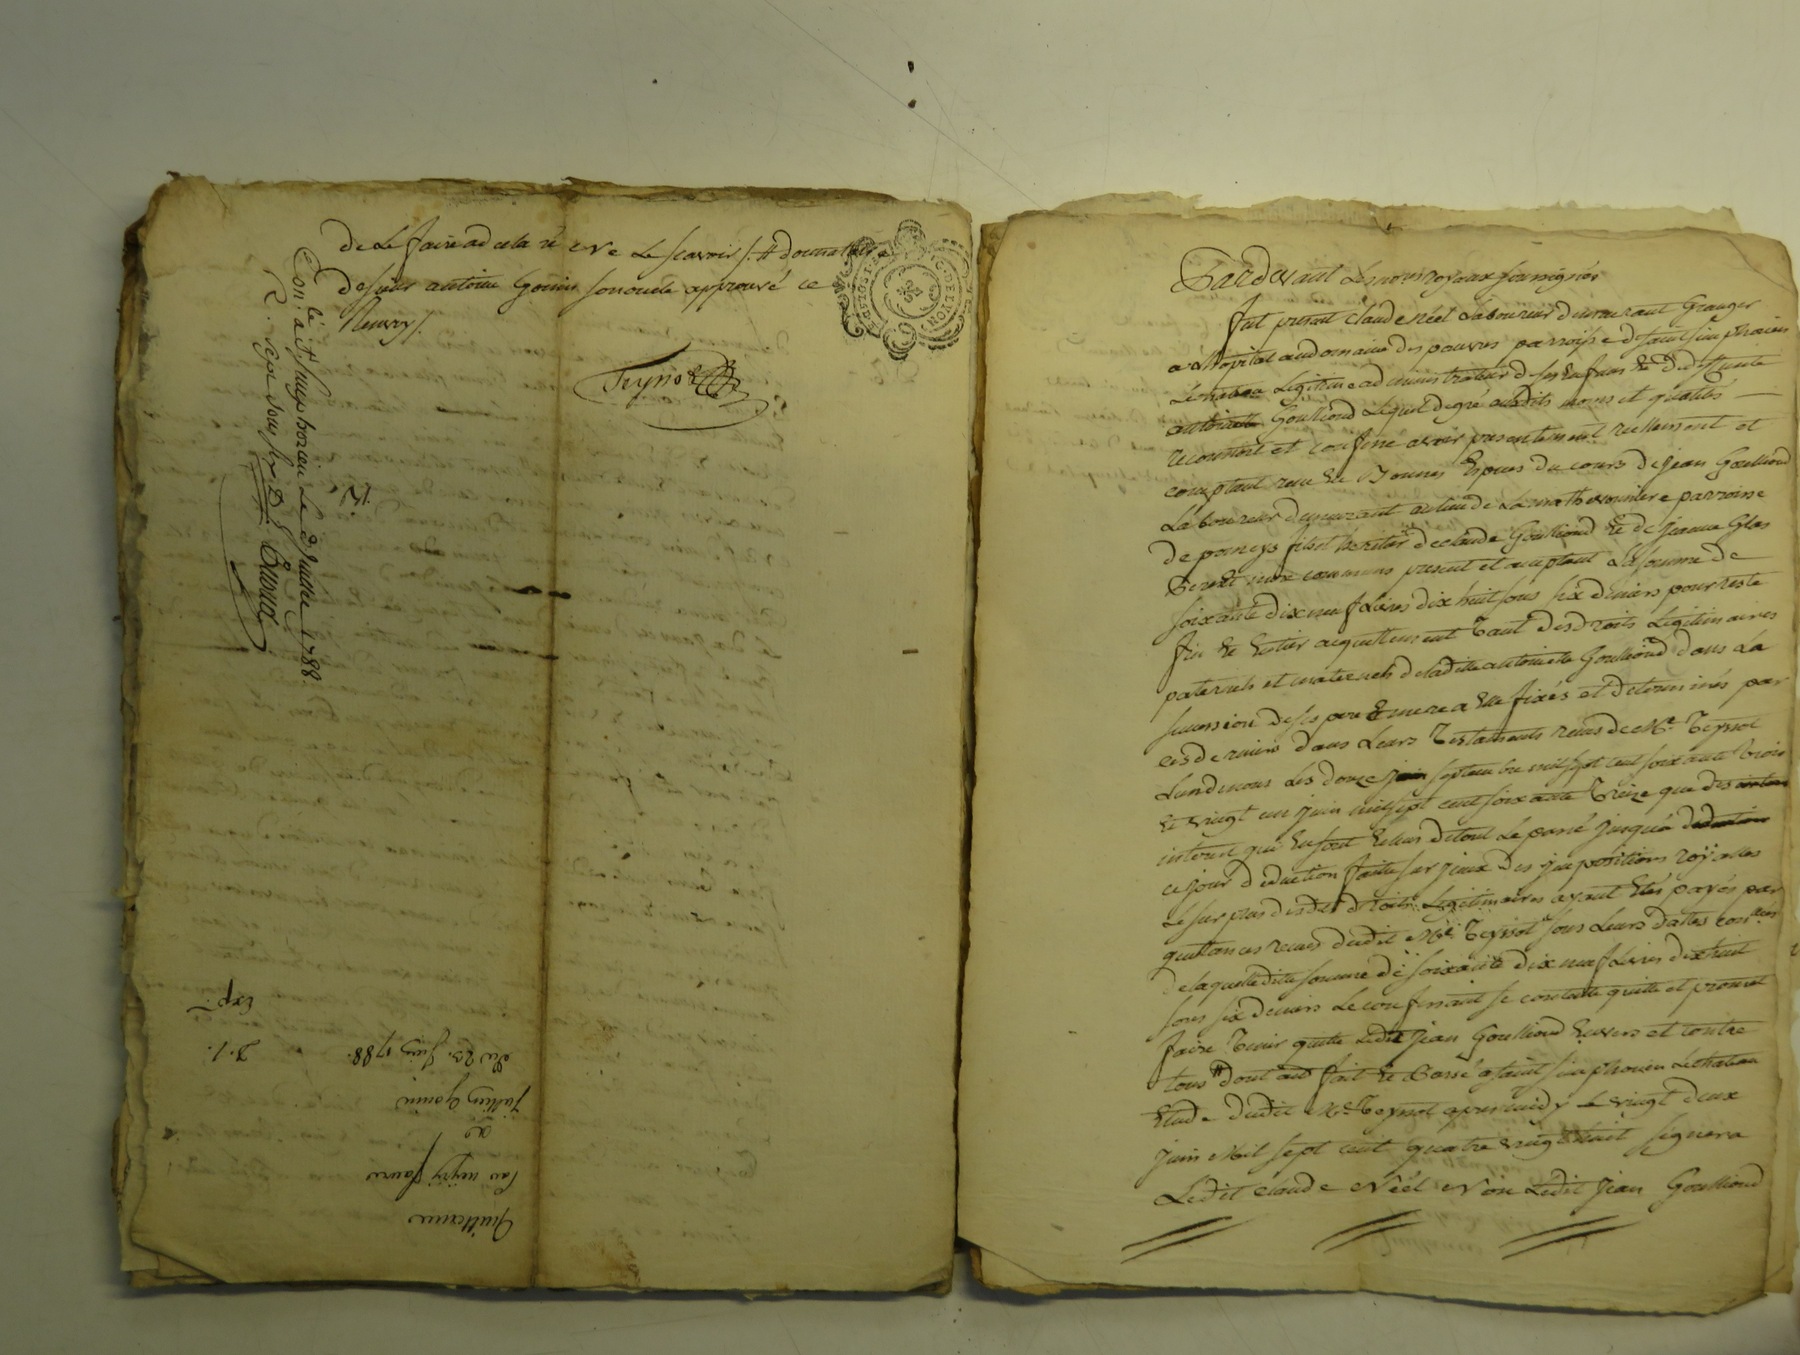 De Le faire ad cela re Ne Le scavoir /. # domestiq
de sieur antoine Gonin son oncle approuvé ce
Renvoy /.
Teyssot
con.lé a St Simphorien Le 3 Juillet 1788
R. sept sous six D.
Quittance
Par
à
Jullien Gonin
Du 23. Juin 1788.
3. f.
Exp.
GÉN. DE LYON
Pardevant Les no.res royaux soussignés
fut present Claude Néel Laboureur demeurant Granger
a L'hopital au domaine des pauvres parroisse de saint simphorien
Lechateau Legitime administrateur de ses Enfans Et de deffunte
antoinette Goulliond Lequel de gré audits noms et qualités
reconnoit et confesse avoir presentement reellement et
comptant receu Et Bourses Expres du cours de Jean Goulliond
Laboureur demeurant au lieu de La parroisse
de pomeys fils et heritier de Claude Goulliond Et de Jeanne
vivre communs present et acceptant La somme de
soixante dix neuf Livres dix huit sous six deniers pour reste
fin Et Entier acquittement Tant des droits Legitimaires
paternels et maternels de ladite antoinette Goulliond dans La
succession de ses pere Et mere a Elle fixés et determinés par
ces derniers dans Leurs Testaments reçus de Me. Teyssot
L'un de nous Les douze juin septembre mil sept cent soixante trois
Et vingt un juin mil sept cent soixante Treize que des
interest qui En sont Echus de tout Le passé jusqu'à
ce jour deduction faitte sur yceux des impositions royalles
Le surplus desdits droits Legitimaires ayant Etés payés par
quittances recues dudit Me. Teyssot sous Leurs dattes con.lées
de laquelle ditte somme de soixante dix neuf Livres dix huit
sous six deniers Le confessant se contente quitte et promet
faire Tenir quitte Ledit Jean Goulliond Envers et contre
tous # dont acte fait Et Passé a saint simphorien Lechateau
Etude dudit Me. Teyssot apres midy Le vingt deux
juin Mil sept cent quatre vingt huit signera
Ledit Claude Néel Non Ledit Jean Goulliond